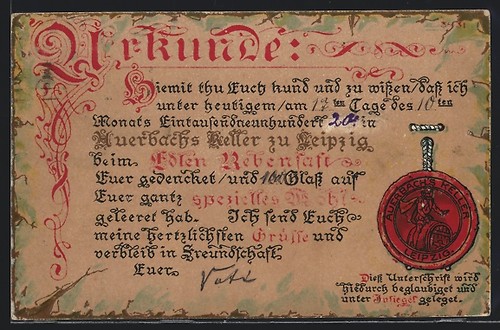 Urkunde:
Hiemit thu Euch kund und zu wißen/daß ich
unter heutigem/am ten Tage des 10ten
Monats Eintausendneunhundert 20 in
Auerbachs Keller zu Leipzig
beim Edlen Rebensaft
Euer gedencket/und Glaß auf
Euer gantz spezielles Wohl
geleeret hab. Ich send Euch
meine hertzlichsten Grüsse und
verbleib in Freundschaft
Euer
AUERBACHS KELLER
LEIPZIG
Dieß Unterschrift wird
hiedurch beglaubiget und
unter Insiegel geleget.